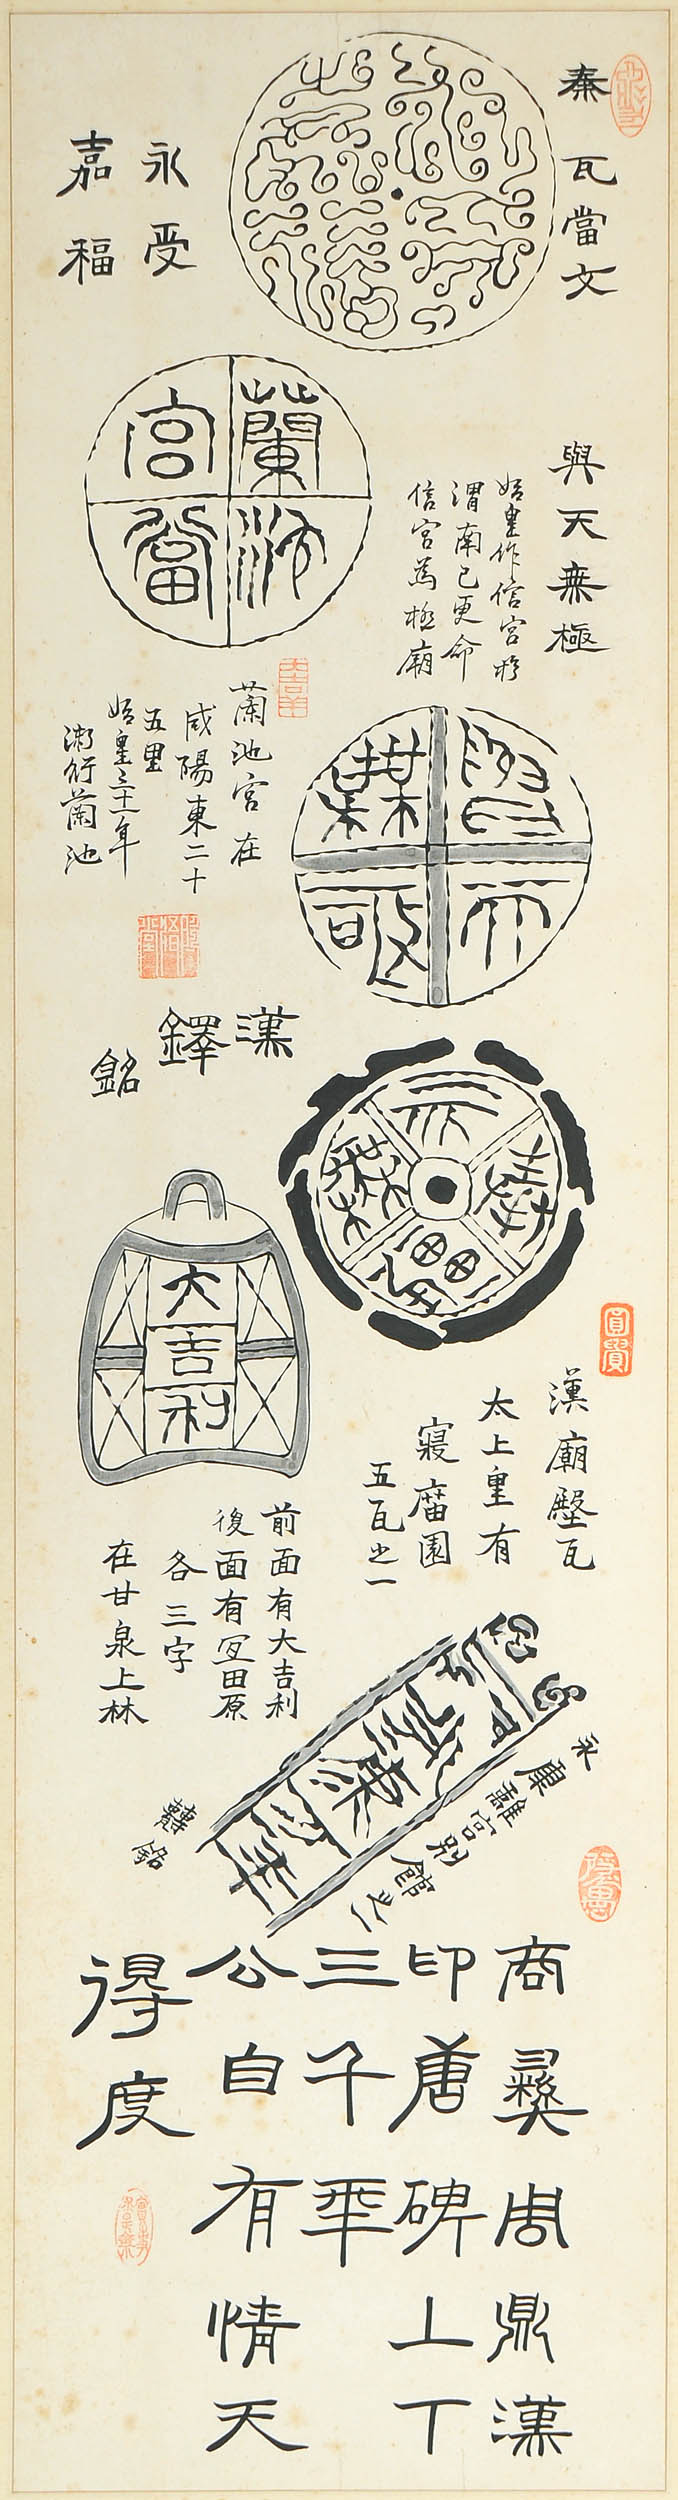 秦瓦當文
永受
嘉福
蘭池
宮當
與天無極
始皇作信宮
渭南已更命
信宮為極廟
蘭池宮在
咸陽東二十
五里
始皇三十一年
微行蘭池
與天
無極
漢
鐸
銘
大吉利
漢廟壂瓦
太上皇有
寢廟園
五瓦之一
前面有大吉利
後面有宜田原
各三字
在甘泉上林
永康離宮別館之一
銘
商彝周鼎漢
印唐碑上下
三千年
公自有情天
得度